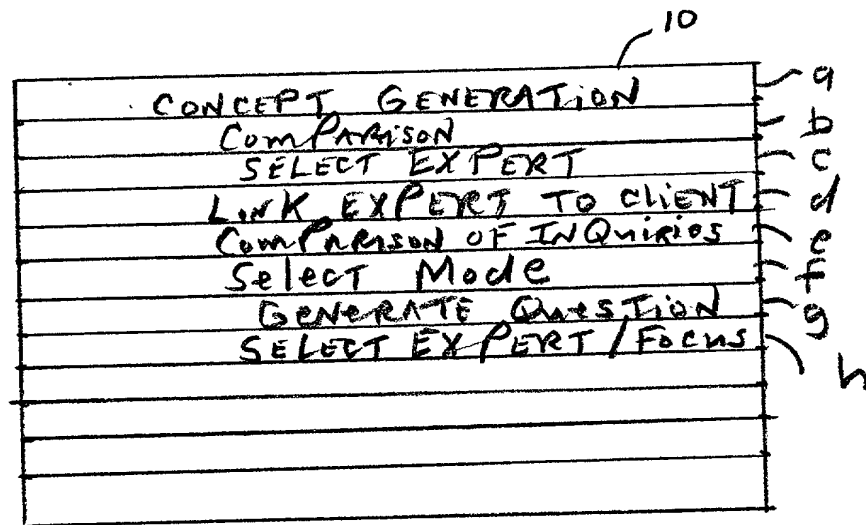 10
CONCEPT GENERATION a
COMPARISON b
SELECT EXPERT c
LINK EXPERT TO CLIENT d
COMPARISON OF INQUIRIES e
Select Mode f
GENERATE QUESTION g
SELECT EXPERT / Focus h